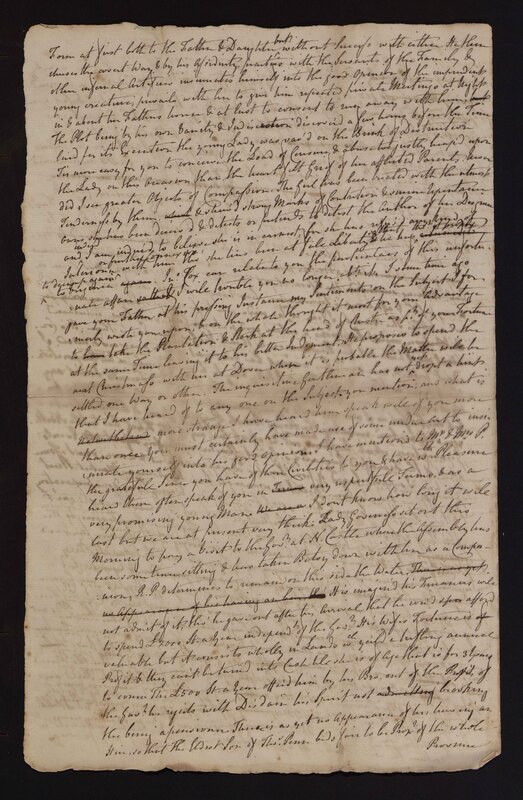 Form at first both to the Father & Daughter but without Success with either He then
chuses the covert Way & by his Assiduity, with the Servants of the Family &
other infernal Artifices insinuates himself into the good Opinion of the imprudent
young creature, prevails with her to give him repeated private Meetings at Nights
in & about her Fathers house & at last to consent to run away with him,
the Plot being by his own Vanity & Indiscretion discovered a few hours before the Time
fixed for its Execution the young Lady was sav'd on the Brink of Destruction
Tis more easy for you to conceive the Load of Censure & abuse being heap'd upon
the Lady on this Occasion than the heartfelt Grief of her afflicted Parents, never
did I see greater Objects of Compassion. The Girl has been treated with the utmost
Tenderness by them, & shewed strong Marks of Contrition & sincere Repentance
owns she has been deceived & detests or pretends to detest the Author of her Disgrace
and I am induced to believe she is in earnest, for she has
with him
J: Fox can relate to you the particulars of this unfortu
nate affair I will trouble you no longer with it I some time ago
gave your Father at his pressing Instance my Sentiments on the Subject I for
merly wrote you upon, & on the whole thought it most for your Advantage
to take the Plantation & Stock at the head of as pt. of your Fortune
at the same Time leaving it to his better Judgment He proposes to spend the
next Christmass with us at Dover when it is probable the Matter will be
settled one Way or other. The inquisitive Gentleman has not dropt a hint
that I have heard of to any one on the Subject you mention, and what is
more strange I have heard him speak well of you more
than once You must certainly have made use of some to insin
uate yourself into his good opinion I have mention'd to Mr. & Mrs. P.
the grateful Sense you have of their Civilities to you & have with Pleasure
heard them often speak of you in very respectful Terms, & as a
very promising young Man I don't know how long it will
last but we are at present very thick. Lady Governess set out this
Morning to pay a Visit to the Govr. at N. Castle where the Assembly has
been some time sitting & has taken Betsey down with her as a Compa-
nion, R P determines to remain on this side the Water
He imagin'd his Finances will
not admit of it tho he gave out after his Arrival that he could afford
to spend £1000 St. a Year independt. of the Govt. His Wifes Fortune is
valuable but it consists wholly in Lands wch. yield a trifling annual
Profit & they cant be turned into Cash till she is of Age that is for 3 Years
to come. The £500 St. a Year offer'd him by his Bro. out of the Profits of
the Govt. he rejects with Disdain his Spirit not brooking
the being a pensioner There is as yet no Appearance of his having an
Heir, so that the Eldest Son of Thos. Penn bids fair to be Propr. of the whole
Province